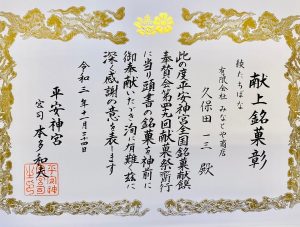 献上銘菓彰
橘たちばな
有限会社 みなとや商店
久保田 一三 殿
此の度平安神宮全国銘菓献饌
奉賛会第四九回献菓祭斎行
に当り頭書の銘菓を神前に
御奉献いただき洵に有難く茲に
深く感謝の意を表します
令和三年十一月二十四日
平安神宮
宮司 本多和夫